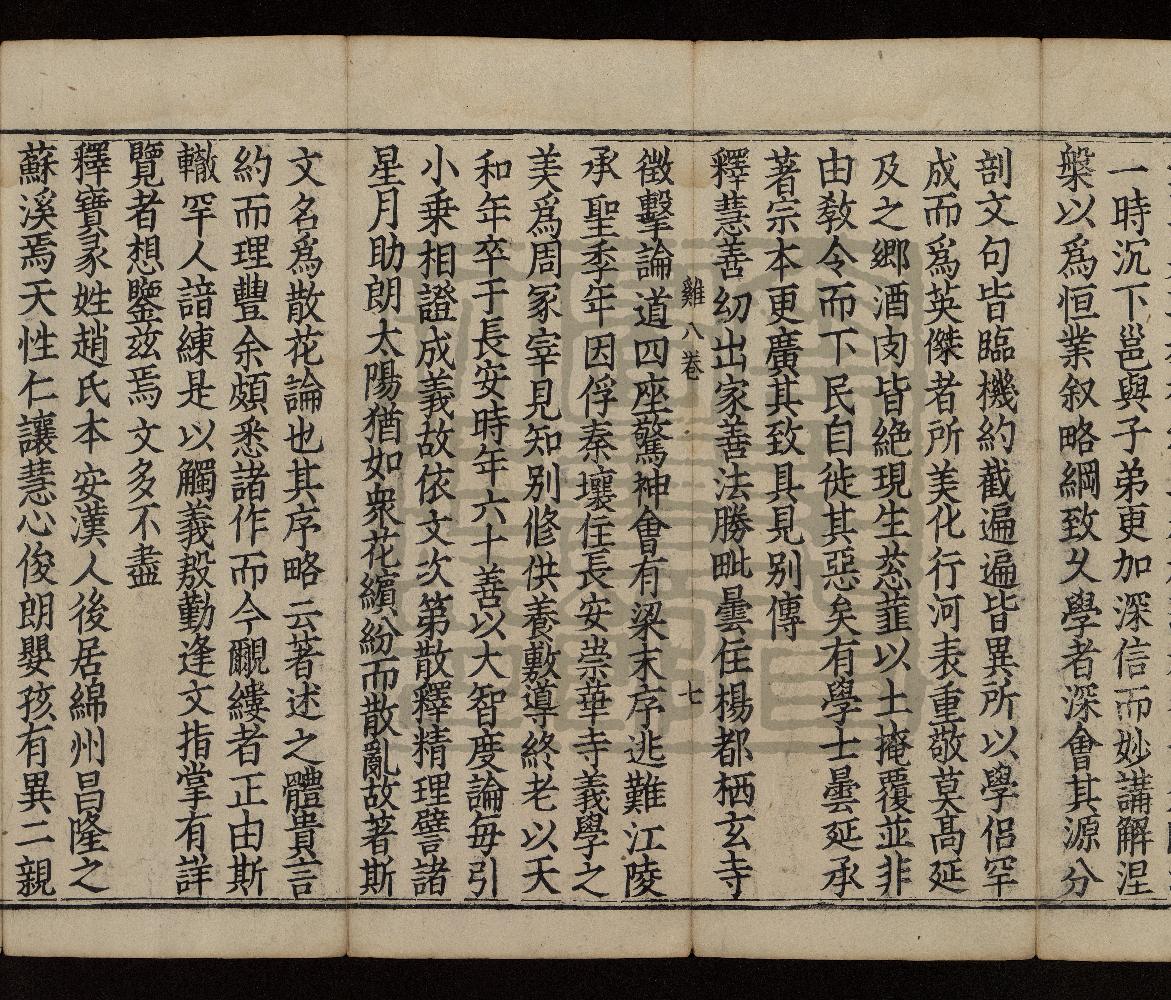 一時沉下邕與子弟更加深信而妙講解涅
槃以為恒業叙略綱致久學者深會其源分
剖文句皆臨機約截遍遍皆異所以學侶罕
成而為英傑者所美化行河表重敬莫髙延
及之鄉酒肉皆絶現生葱韮以土掩覆並非
由教令而下民自徙其惡矣有學士曇延承
著宗本更廣其致具見别傳
釋慧善㓜出家善法勝毗曇住楊都栖玄寺
雞八卷 七
徵擊論道四座驚神㑹有梁末序逃難江陵
承聖季年因俘秦壤住長安崇華寺義學之
美為周冢宰見知别修供養敷導終老以天
和年卒于長安時年六十善以大智度論每引
小乗相證成義故依文次第散釋精理譬諸
星月助朗太陽猶如衆花繽紛而散亂故著斯
文名為散花論也其序略云著述之體貴言
約而理豐余頗悉諸作而今覼縷者正由斯
轍罕人諳練是以觸義殷勤逢文指掌有詳
覽者想鑒兹焉文多不盡
釋寶彖姓趙氏本安漢人後居綿州昌隆之
蘇溪焉天性仁讓慧心俊朗嬰孩有異二親